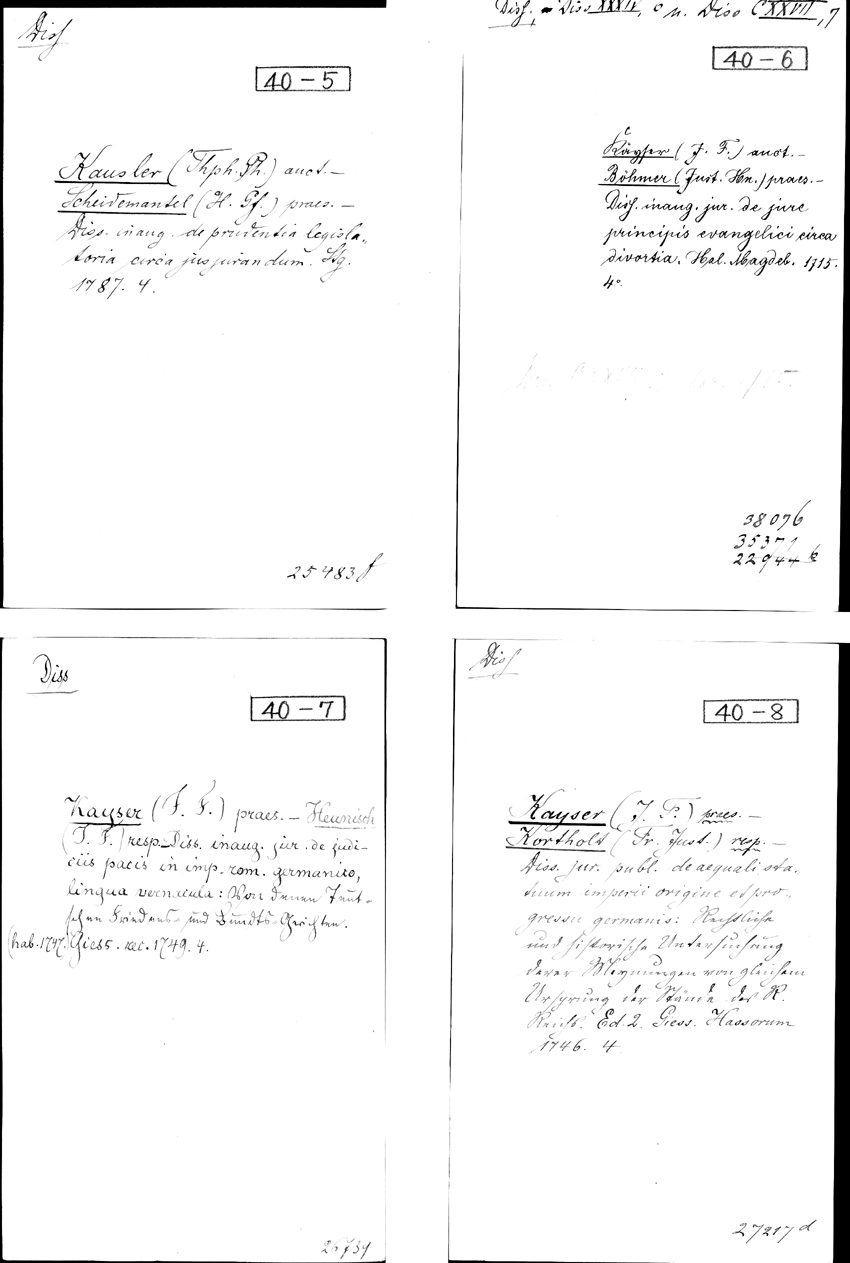 Diss
40-5
Kausler (Thph. Ph.) auct. —
Scheidemantel (H. Gf.) praes. —
Diss. inaug. de prudentia legisla-
toria circa jusjurandum. Stg.
1787. 4.
25483 f
Diss. Diss XXXIV, 6 u. Diss CXXVII, 7
40-6
Käyser (J. F.) auct. —
Böhmer (Just. Hn.) praes. —
Diss. inaug. jur. de jure
principis evangelici circa
divortia. Hal. Magdeb. 1715.
4°.
38076
35371
22944 b
Diss
40-7
Kayser (J. F.) praes. — Heunisch
(J. F.) resp. Diss. inaug. jur. de judi-
ciis pacis in imp. rom. germanico,
lingua vernacula: Von denen Teut-
schen Friedens- und Bundts-Gerichten.
(hab. 1747.) Giess. rec. 1749. 4.
26734
Diss
40-8
Kayser (J. F.) praes. —
Kortholt (Fr. Just.) resp. —
Diss. jur. publ. de aequali sta-
tuum imperii origine et pro-
gressu germanis: Rechtliche
und historische Untersuchung
derer Meynungen von gleichem
Ursprung der Stände des R.
Reichs. Ed. 2. Giess. Hassorum
1746. 4.
27217 d